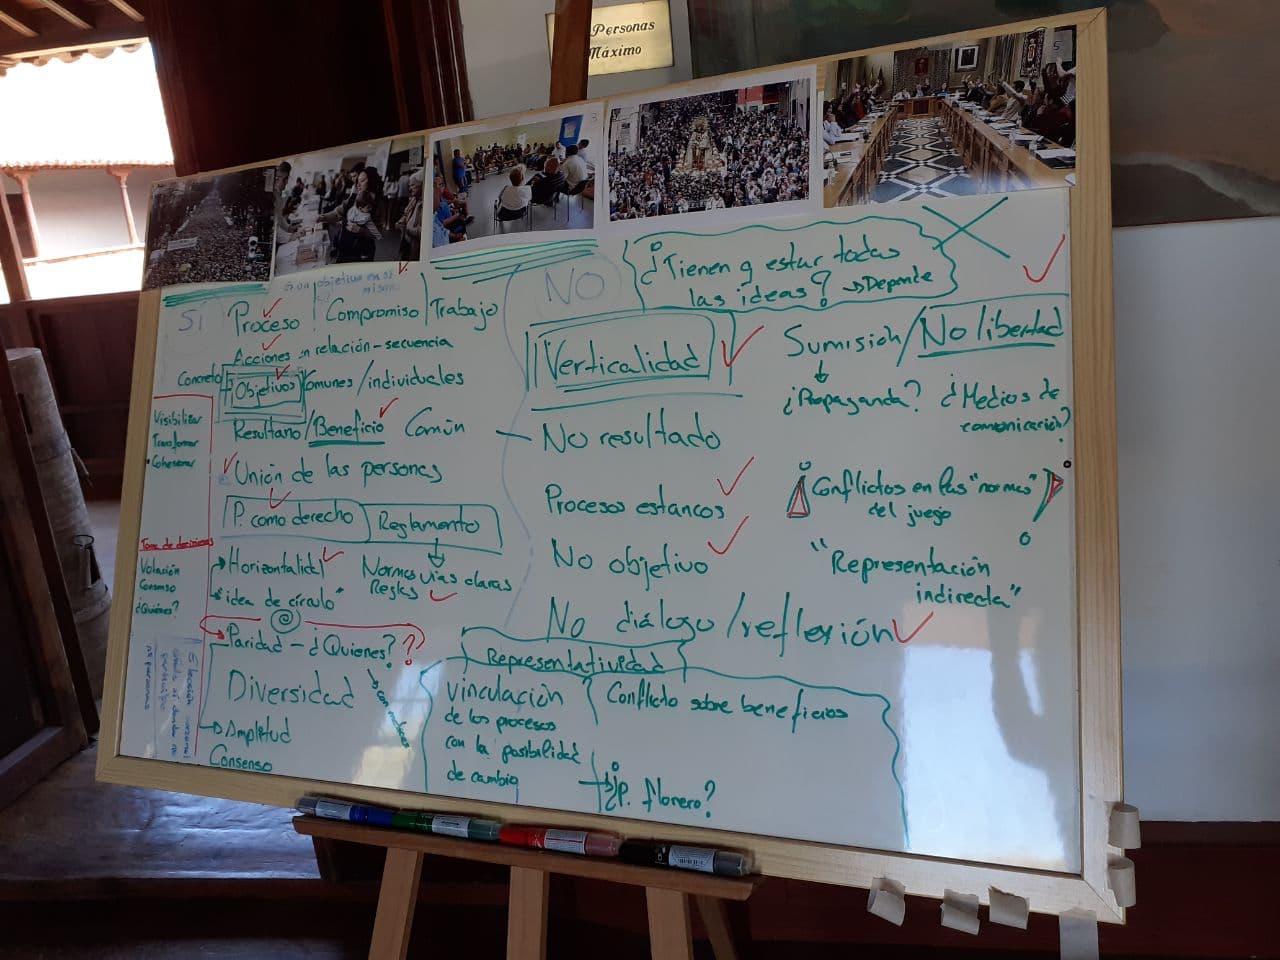 Personas
Máximo
SI
es un objetivo en sí
mismo
Proceso / Compromiso / Trabajo
Acciones en relación - secuencia
Concreto
Objetivos comunes / individuales
Resultado / Beneficio Común
Unión de las personas
P. como derecho
Reglamento
Horizontalidad
"idea de círculo"
Normas vías claras
Reglas
Paridad - ¿Quienes? ?
Diversidad
Amplitud
Consenso
Visibilizar
Transformar
Cohesionar
Toma de decisiones
Votación
Consenso
¿Quiénes?
NO
¿Tienen q estar todas
las ideas? → Depende
Verticalidad
No resultado
Procesos estancos
No objetivo
No diálogo / reflexión
Sumisión / No libertad
¿Propaganda? ¿Medios de
comunicación?
¡Conflictos en las "normas"
del juego!
"Representación
indirecta"
Representatividad
Vinculación
de los procesos
con la posibilidad
de cambio
Conflicto sobre beneficios
¿P. florero?